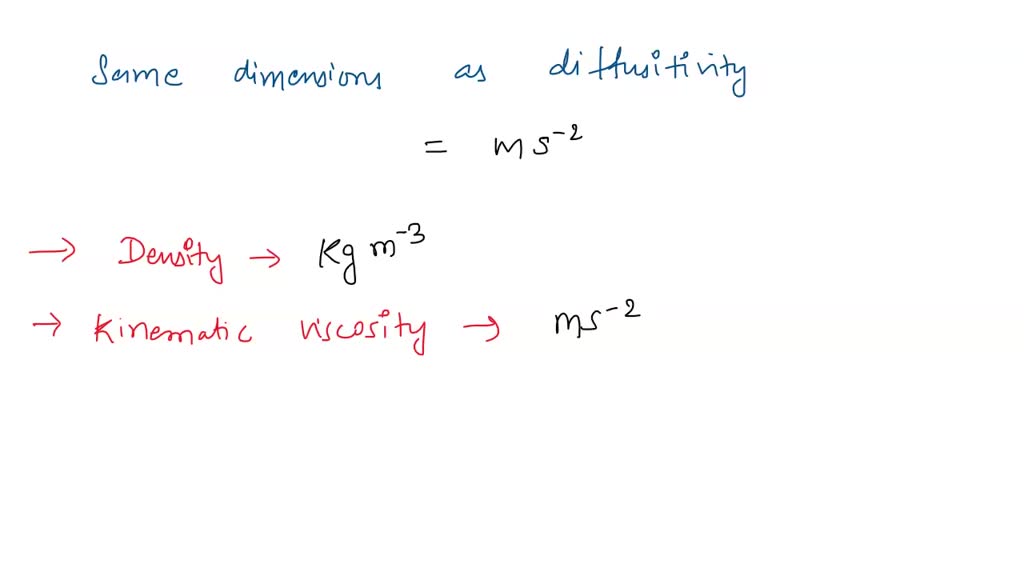 Same dimensions as diffusitivity
= m s⁻²
→ Density → Kg m⁻³
→ Kinematic viscosity → ms⁻²